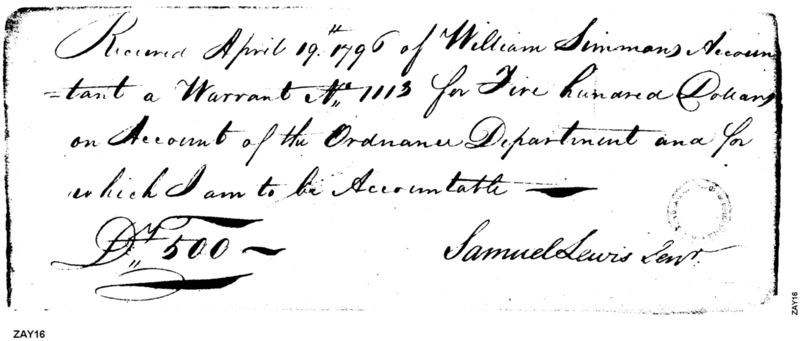 Received April 19.th 1796 of William Simmons Accoun
=tant a Warrant No. 1113 for Five hundred Dollars
on Account of the Ordnance Department and for
which I am to be Accountable —
Drs 500 — Samuel Lewis Senr.
ZAY16
ZAY16